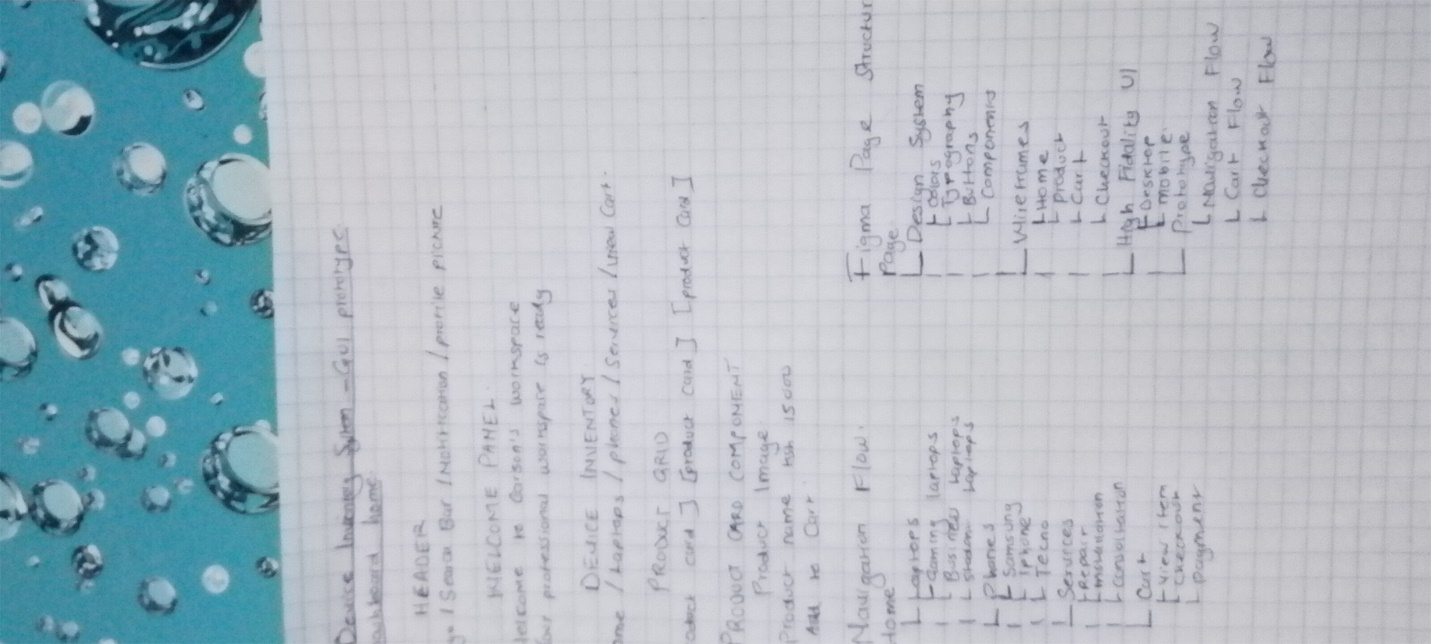 Device Inventory System - GUI prototype.
Dashboard home
HEADER
/ Search Bar / Notification / profile picture
WELCOME PANEL
Welcome to Carson's workspace
Your professional workspace is ready
DEVICE INVENTORY
/ Laptops / phones / Services / View Cart.
PRODUCT GRID
card ] [product card ] [product card ]
PRODUCT CARD COMPONENT
Product Image
Product name ksh 15000
Add to Cart.
Navigation Flow.
Home
Laptops
Gaming laptops
Business laptops
laptops
Phones
Samsung
Iphone
Tecno
Services
Repair
Installation
Consultation
Cart
View item
Checkout
payment
Figma Page Structur
Page
Design System
Colors
Typography
Buttons
Components
Wireframes
Home
Product
Cart
Checkout
High Fidality UI
Desktop
Mobile.
Prototype
Navigation Flow
Cart Flow
Checkout Flow